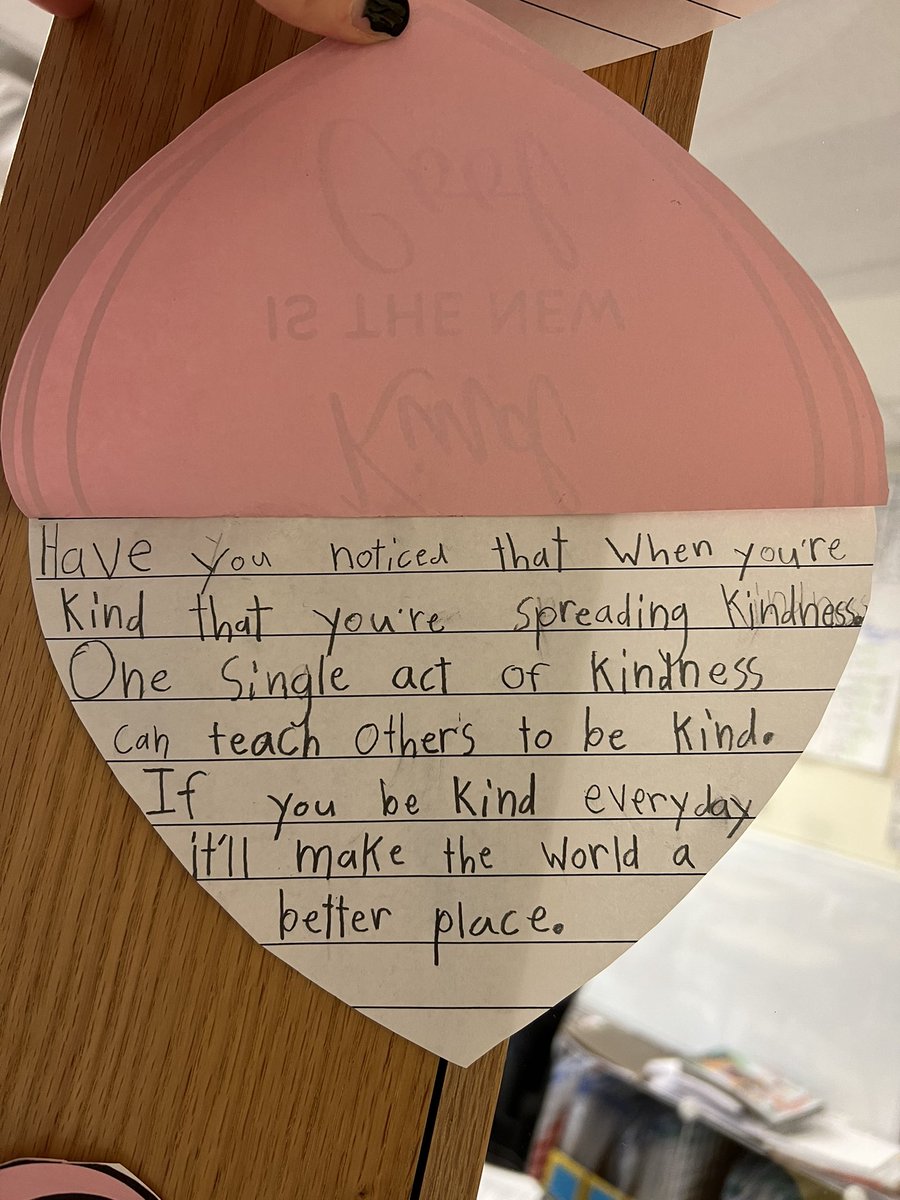 Kind
IS THE NEW
Have you noticed that When you're
Kind that you're spreading Kindness.
One Single act of kindness
can teach Other's to be Kind.
If you be kind everyday
it'll make the World a
better place.